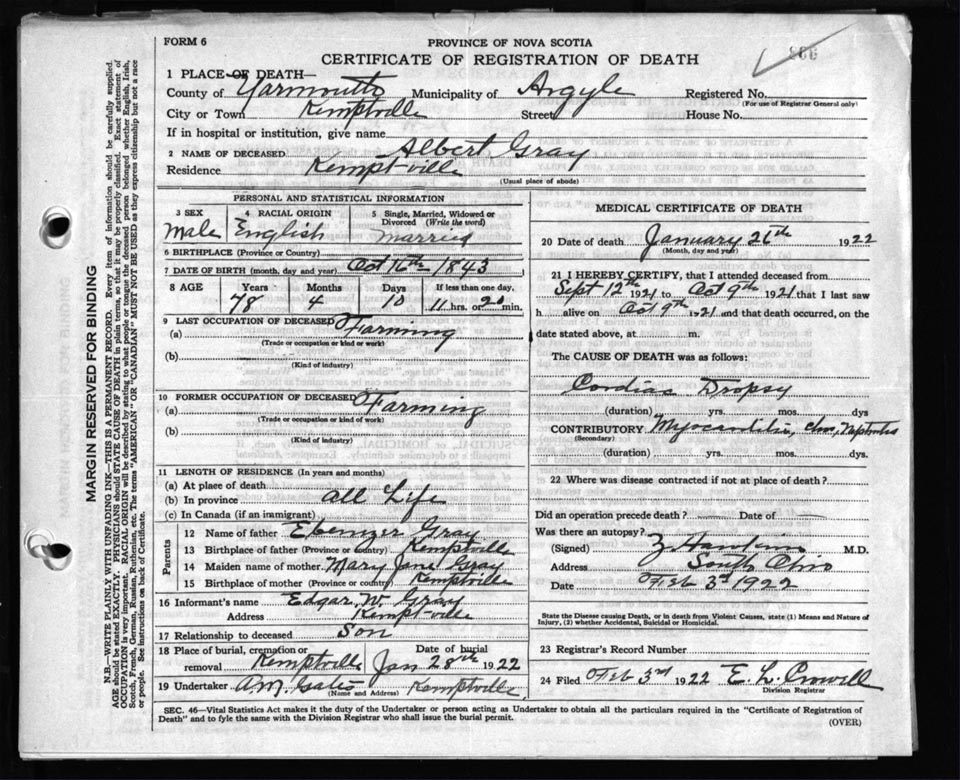 FORM 6
PROVINCE OF NOVA SCOTIA
CERTIFICATE OF REGISTRATION OF DEATH
1 PLACE OF DEATH—
County of Yarmouth Municipality of Argyle Registered No.
(For use of Registrar General only)
City or Town Kemptville Street House No.
If in hospital or institution, give name
2 NAME OF DECEASED Albert Gray
Residence Kemptville
(Usual place of abode)
PERSONAL AND STATISTICAL INFORMATION
3 SEX 4 RACIAL ORIGIN 5 Single, Married, Widowed or Divorced (Write the word)
Male English Married
6 BIRTHPLACE (Province or Country)
7 DATE OF BIRTH (month, day and year) Oct 16th 1843
8 AGE Years Months Days If less than one day,
78 4 10 11 hrs. or 20 min.
9 LAST OCCUPATION OF DECEASED
(a) Farming
(Trade or occupation or kind or work)
(b)
(Kind of industry)
10 FORMER OCCUPATION OF DECEASED
(a) Farming
(Trade or occupation or kind of work)
(b)
(Kind of industry)
11 LENGTH OF RESIDENCE (In years and months)
(a) At place of death
(b) In province all Life
(c) In Canada (if an immigrant)
Parents
12 Name of father Ebenezer Gray
13 Birthplace of father (Province or country) Kemptville
14 Maiden name of mother Mary Jane Gray
15 Birthplace of mother (Province or country) Kemptville
16 Informant's name Edgar W. Gray
Address Kemptville
17 Relationship to deceased Son
18 Place of burial, cremation or removal Kemptville Date of burial Jan 28th 1922
19 Undertaker A.M. Gates Kemptville
(Name and Address)
MEDICAL CERTIFICATE OF DEATH
20 Date of death January 26th 1922
(Month, day and year)
21 I HEREBY CERTIFY, that I attended deceased from
Sept 12th 1921 to Oct 9th 1921 that I last saw
h alive on Oct 9th 1921 and that death occurred, on the
date stated above, at m.
The CAUSE OF DEATH was as follows:
Cordiac Dropsy
(duration) yrs. mos. dys
CONTRIBUTORY Myocarditis, chr,
(Secondary)
(duration) yrs. mos. dys.
22 Where was disease contracted if not at place of death?
Did an operation precede death? Date of
Was there an autopsy?
(Signed) M.D.
Address South Ohio
Date Feb 3rd 1922
State the Disease causing Death, or in death from Violent Causes, state (1) Means and Nature of
Injury, (2) whether Accidental, Suicidal or Homicidal.
23 Registrar's Record Number
24 Filed Feb 3rd 1922 E. L. Crowell
Division Registrar
SEC. 46—Vital Statistics Act makes it the duty of the Undertaker or person acting as Undertaker to obtain all the particulars required in the "Certificate of Registration of
Death" and to fyle the same with the Division Registrar who shall issue the burial permit.
(OVER)
MARGIN RESERVED FOR BINDING
N.B.—WRITE PLAINLY WITH UNFADING INK—THIS IS A PERMANENT RECORD. Every item of information should be carefully supplied.
AGE should be stated EXACTLY. PHYSICIANS should STATE CAUSE OF DEATH in plain terms, so that it may be properly classified. Exact statement of
OCCUPATION is very important. RACIAL ORIGIN will be described by stating to what people or tongue the deceased person belonged whether English, Irish,
Scotch, French, German, Russian, Ruthenian, etc. The terms "AMERICAN" OR "CANADIAN" MUST NOT BE USED as they express citizenship but not a race
or people. See instructions on back of Certificate.